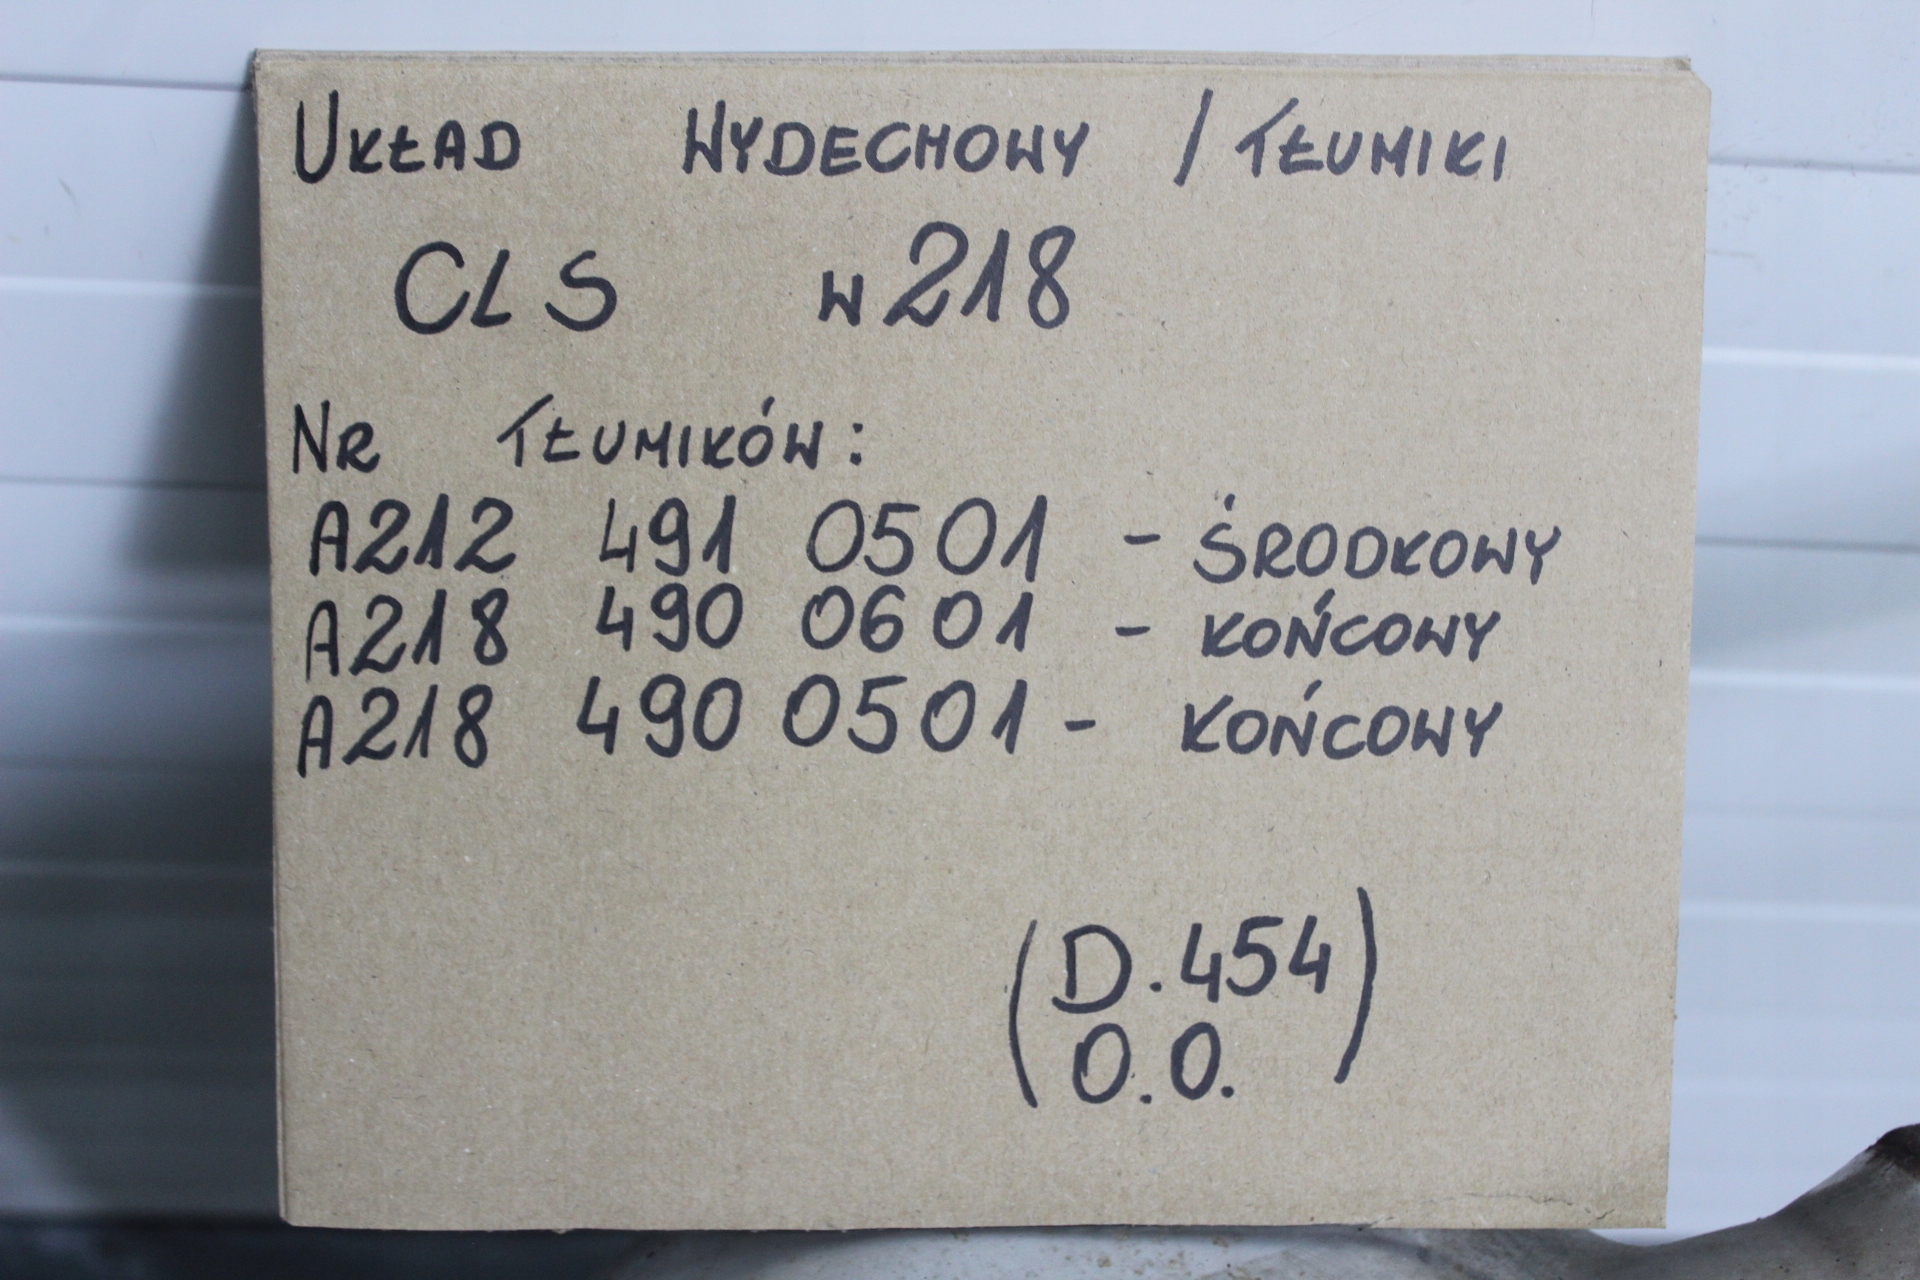 UKŁAD WYDECHOWY / TŁUMIKI
CLS W218
NR TŁUMIKÓW:
A212 491 0501 - ŚRODKOWY
A218 490 0601 - KOŃCOWY
A218 490 0501 - KOŃCOWY
(D.454
O.O.)